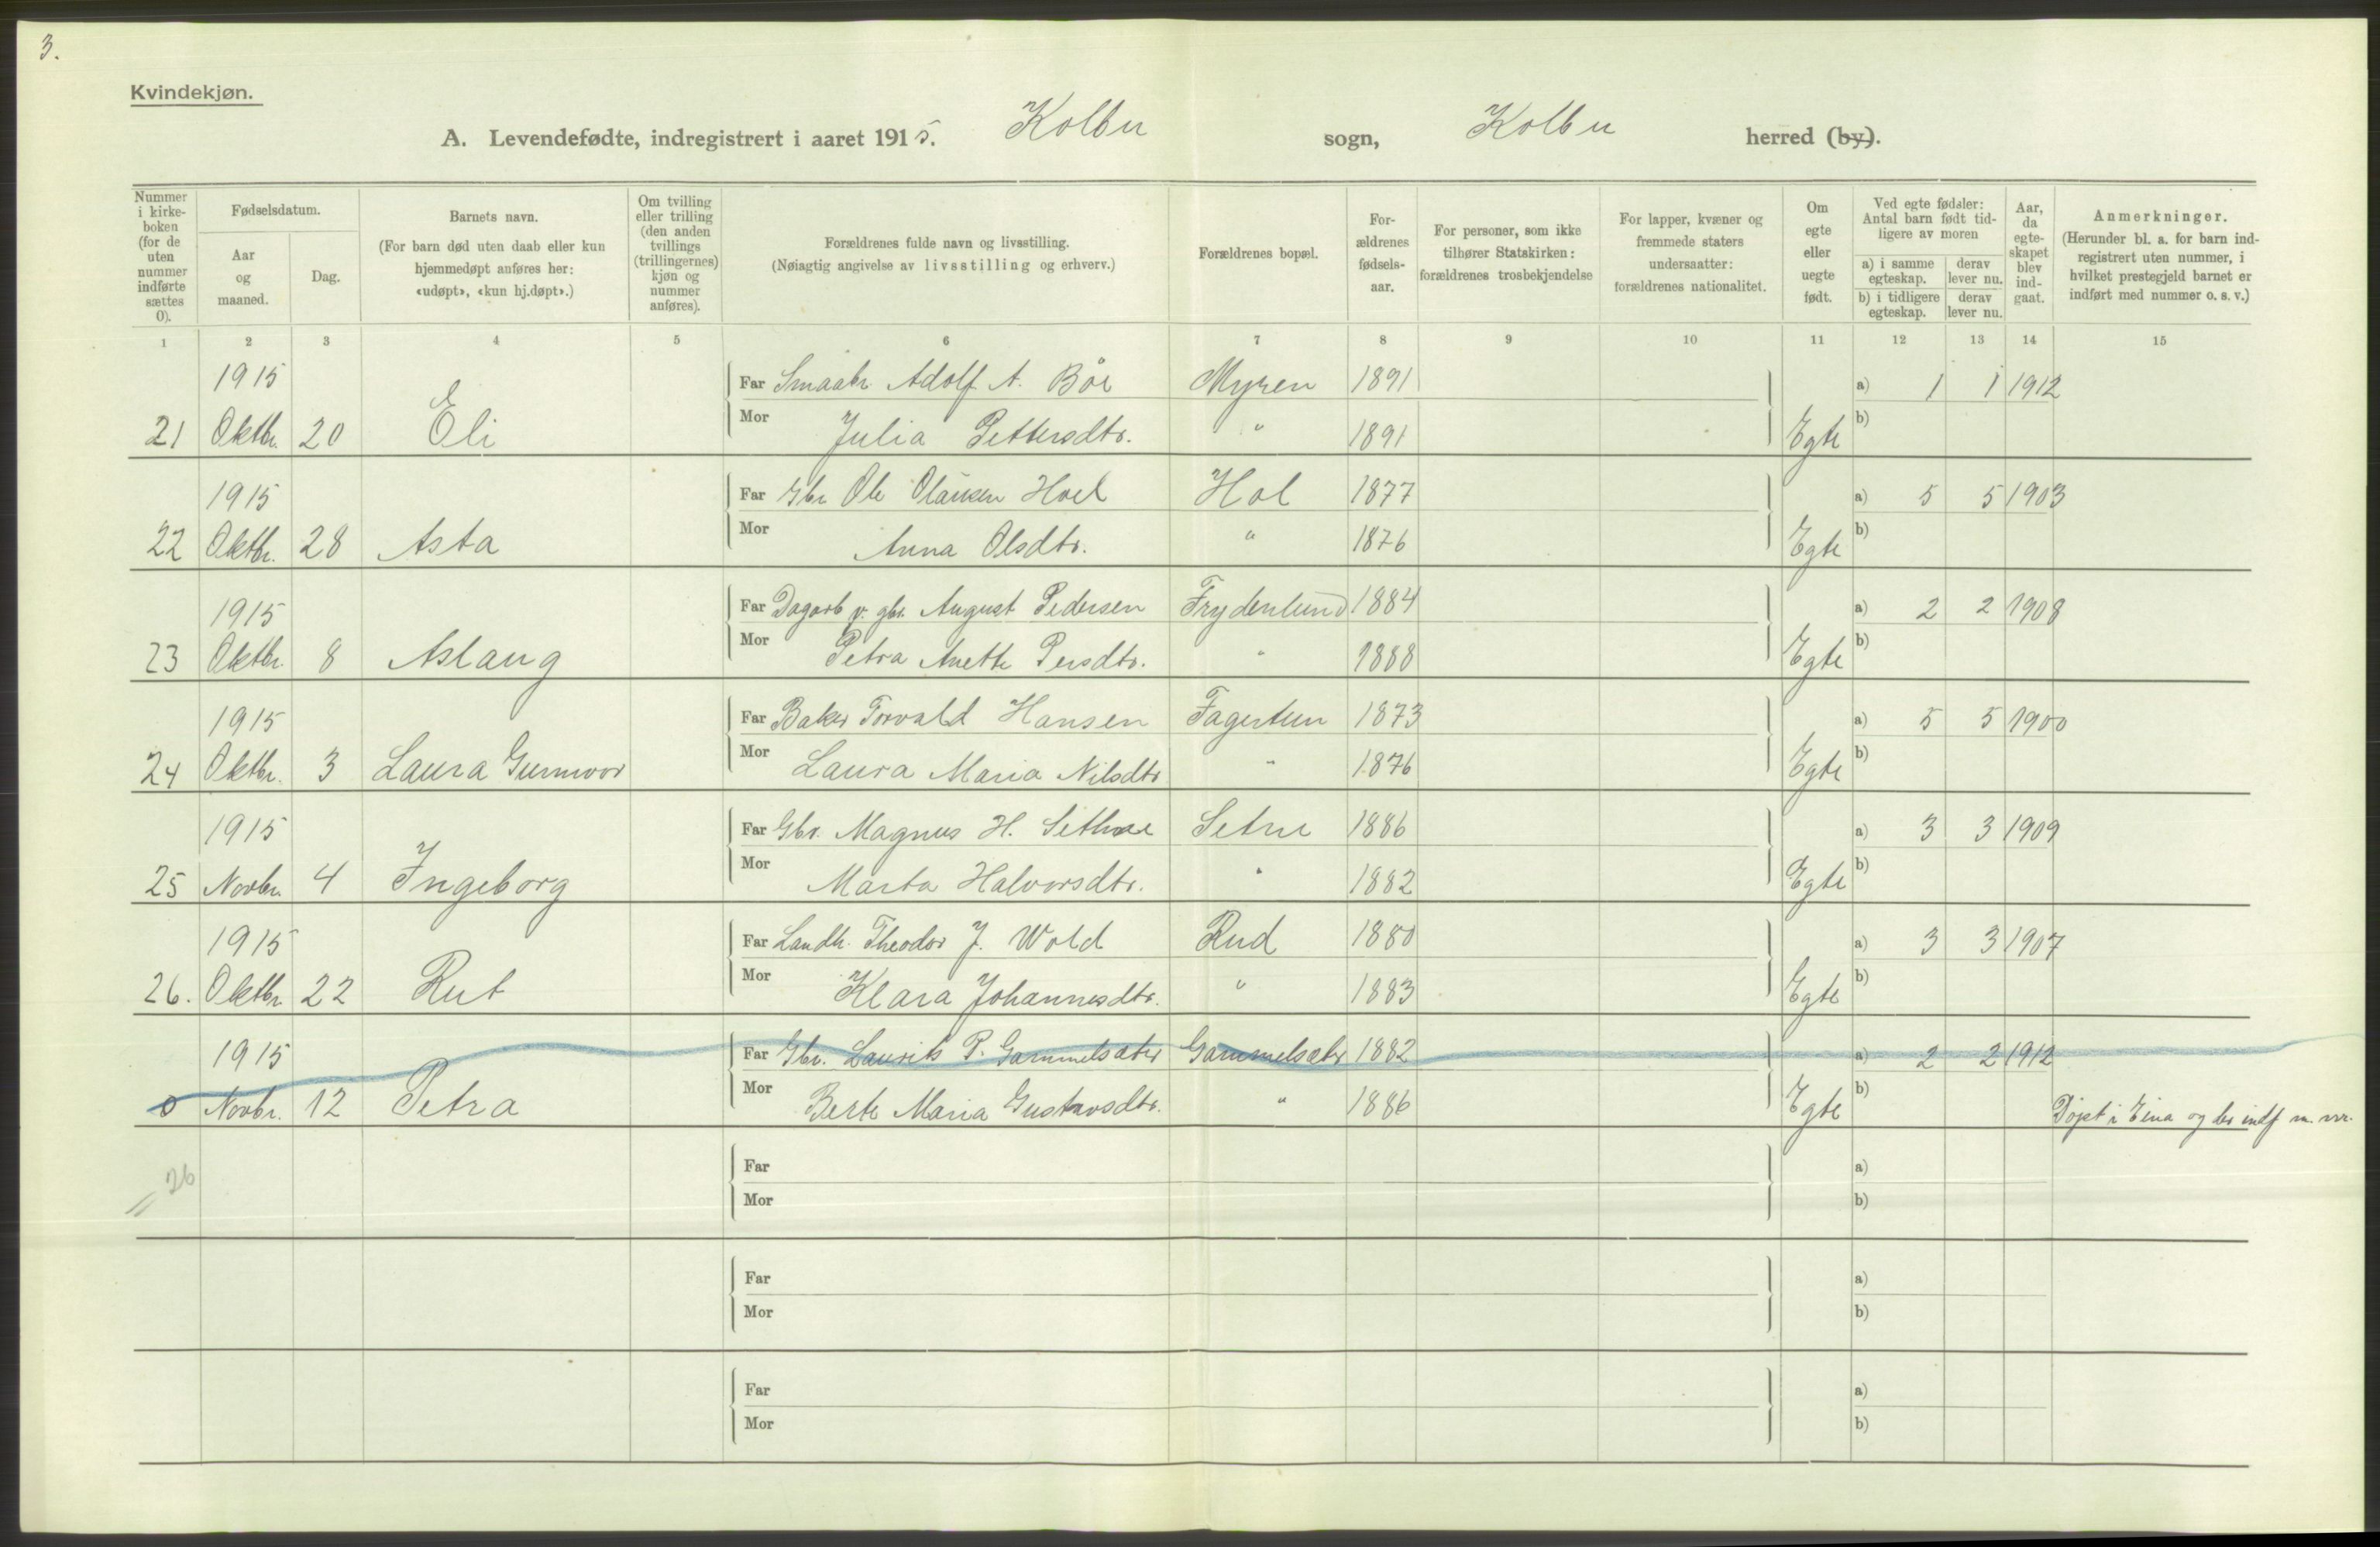 3.
Kvindekjøn.
A. Levendefødte, indregistrert i aaret 1915. Kolbu sogn, Kolbu herred (by).
Nummer i kirkeboken (for de uten nummer indførte sættes 0).
Fødselsdatum.
Aar og maaned.
Dag.
Barnets navn.
(For barn død uten daab eller kun hjemmedøpt anføres her: «udøpt», «kun hj.døpt».)
Om tvilling eller trilling (den anden tvillings (trillingernes) kjøn og nummer anføres).
Forældrenes fulde navn og livsstilling.
(Nøiagtig angivelse av livsstilling og erhverv.)
Forældrenes bopæl.
For-ældrenes fødsels-aar.
For personer, som ikke tilhører Statskirken: forældrenes trosbekjendelse
For lapper, kvæner og fremmede staters undersaatter: forældrenes nationalitet.
Om egte eller uegte født.
Ved egte fødsler: Antal barn født tid-ligere av moren
a) i samme egteskap.
derav lever nu.
b) i tidligere egteskap.
derav lever nu.
Aar, da egte-skapet blev ind-gaat.
Anmerkninger.
(Herunder bl. a. for barn ind-registrert uten nummer, i hvilket prestegjeld barnet er indført med nummer o. s. v.)
1 2 3 4 5 6 7 8 9 10 11 12 13 14 15
1915 Far Smaabr. Adolf A. Bøe Myren 1891 a) 1 1 1912
21 Oktbr. 20 Eli Mor Julia Pettersdtr. " 1891 Egte b)
1915 Far Gbr Ole Olausen Hoel Hol 1877 a) 5 5 1903
22 Oktbr. 28 Asta Mor Anna Olsdtr. " 1876 Egte b)
1915 Far Dagarb v. gbr. August Pedersen Frydenlund 1884 a) 2 2 1908
23 Oktbr. 8 Aslaug Mor Petra Anette Persdtr. " 1888 Egte b)
1915 Far Baker Torvald Hansen Fagertun 1873 a) 5 5 1900
24 Oktbr. 3 Laura Gunvor Mor Laura Maria Nilsdtr " 1876 Egte b)
1915 Far Gbr. Magnus H. Sethre Setre 1886 a) 3 3 1909
25 Novbr. 4 Ingeborg Mor Marta Halvorsdtr. " 1882 Egte b)
1915 Far Landh. Theodor J. Wold Rud 1880 a) 3 3 1907
26. Oktbr 22 Rut Mor Klara Johannesdtr. " 1883 Egte b)
1915 Far Gbr. Laurits P. Gammelsæter Gammelsæter 1882 a) 2 2 1912
0 Novbr. 12 Petra Mor Berte Maria Gustavsdtr. " 1886 Egte b) Døpt i Eina og der indf m. nr.
Far a)
26 Mor b)
Far a)
Mor b)
Far a)
Mor b)